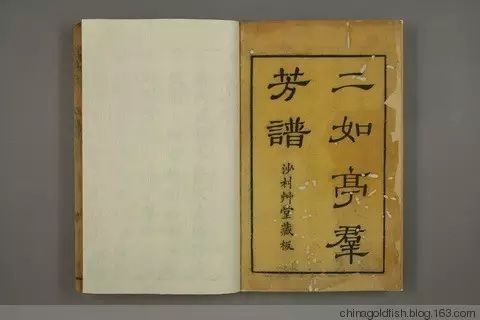 二如亭羣
芳譜
沙村艸堂藏板
chinagoldfish.blog.163.com